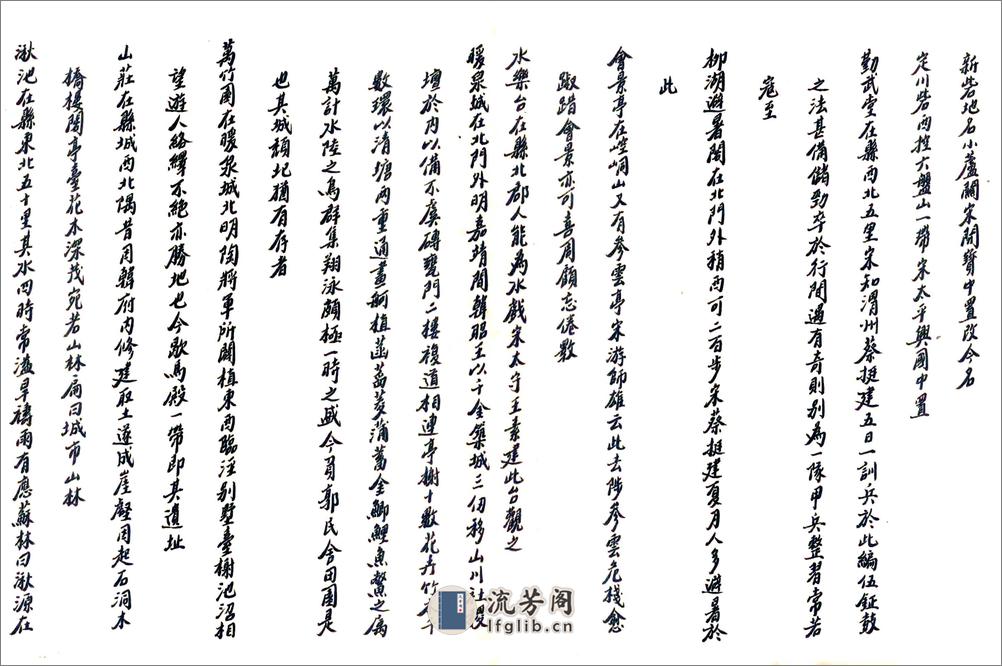 新砦地名小蘆關宋開寶中置改今名
定川砦西控六盤山一帶宋太平興國中置
勤武堂在縣西北五里宋知渭州蔡挺建五日一訓兵於此編伍鉦鼓
之法甚備儲勁卒於行間遇有奇則别為一隊甲兵整習常若
寇至
柳湖避暑閣在北門外稍西可二百步宋蔡挺建夏月人多避暑於
此
會景亭在崆峒山又有參雲亭宋游師雄云此去陟參雲危棧愈
踧踖會景亦可喜周顧忘倦數
水樂台在縣北郡人能為水戲宋太守王素建此台觀之
暖泉城在北門外明嘉靖間韓昭王以千金築城三仞移山川社稷
壇於内以備不虞磚甕門二樓複道相連亭榭十數花卉竹
數環以清塘两重通畫舸植菡萏菱蒲蓄金鯽鯉魚鱉之属
萬計水陸之鳥群集翔泳頗極一時之盛今為郭民舍田園是
也其城頹圮猶有存者
萬竹園在暖泉城北明陶將軍所闢植東西臨涇别墅臺榭池沼相
望遊人絡繹不絶亦勝地也今歇馬殿一帶即其遺址
山莊在縣城西北隅昔因韓府内修建取土遂成崖壑因起石洞木
橋樓閣亭臺花木深茂宛若山林扁曰城市山林
湫池在縣東北五十里其水四時常溢旱禱雨有應蘇林曰湫源在
流芳阁
lfglib.cn